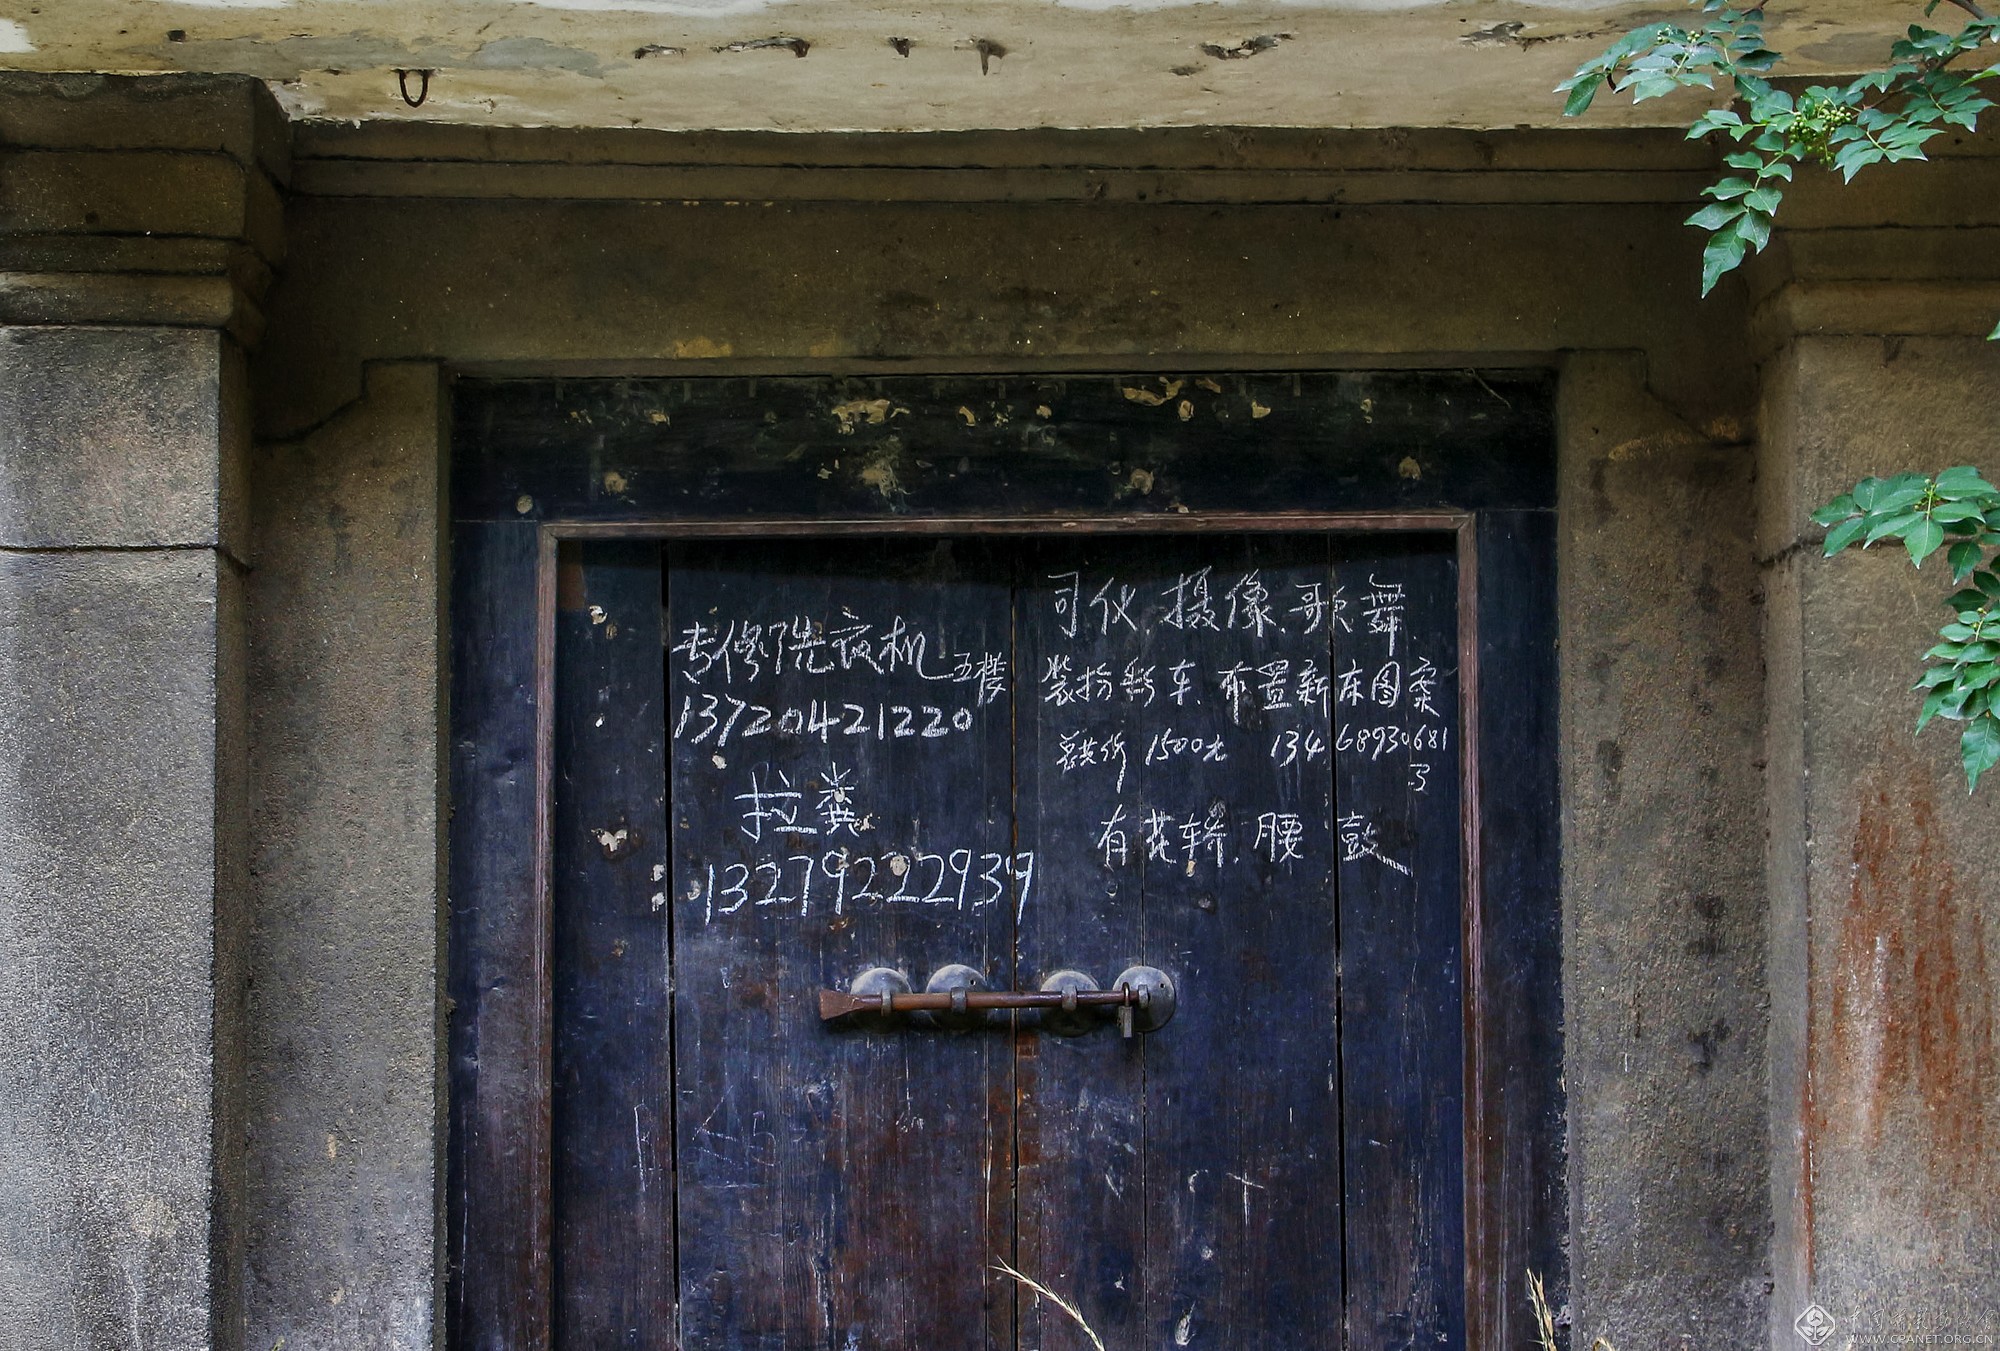 专修洗衣机 五楼
13720421220
拉粪
13279222939
司仪.摄像.歌舞.
装扮彩车.布置新床图案
总共价 1500元 13468930681
有花轿.腰鼓
WWW.CPANET.ORG.CN